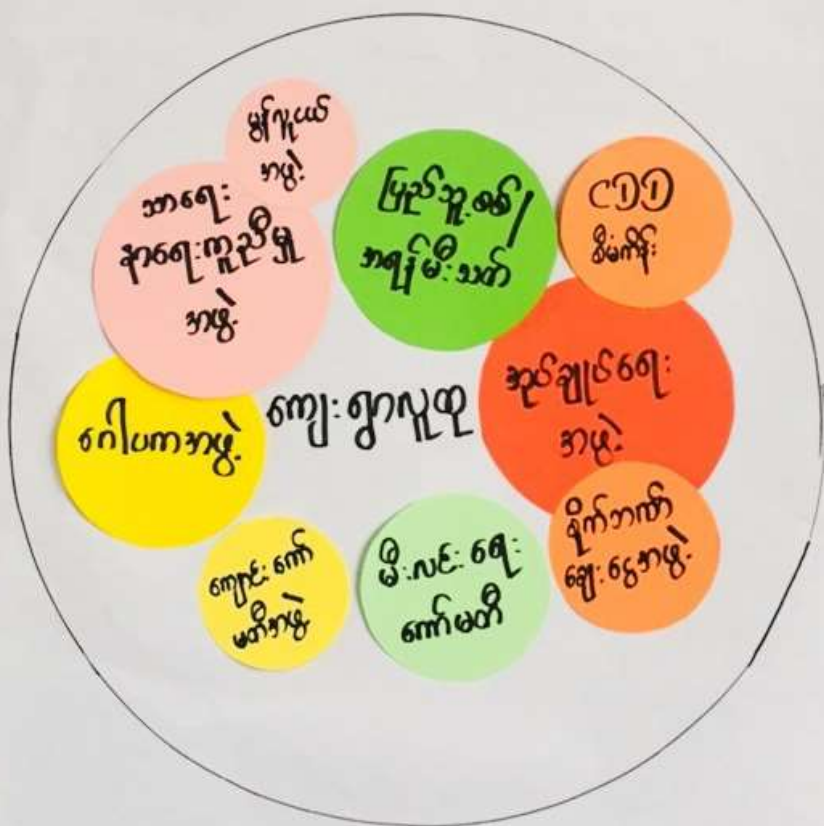 မွန်လူငယ်
အဖွဲ့
သာရေး
နာရေးကူညီမှု
အဖွဲ့
ပြည်သူ့စစ်/
အရန်မီးသတ်
CDD
စီမံကိန်း
အုပ်ချုပ်ရေး
အဖွဲ့
ကျေးရွာလူထု
ဂေါပကအဖွဲ့
ကျောင်းကော်
မတီအဖွဲ့
မီးလင်းရေး
ကော်မတီ
စိုက်ဘဏ်
ချေးငွေအဖွဲ့